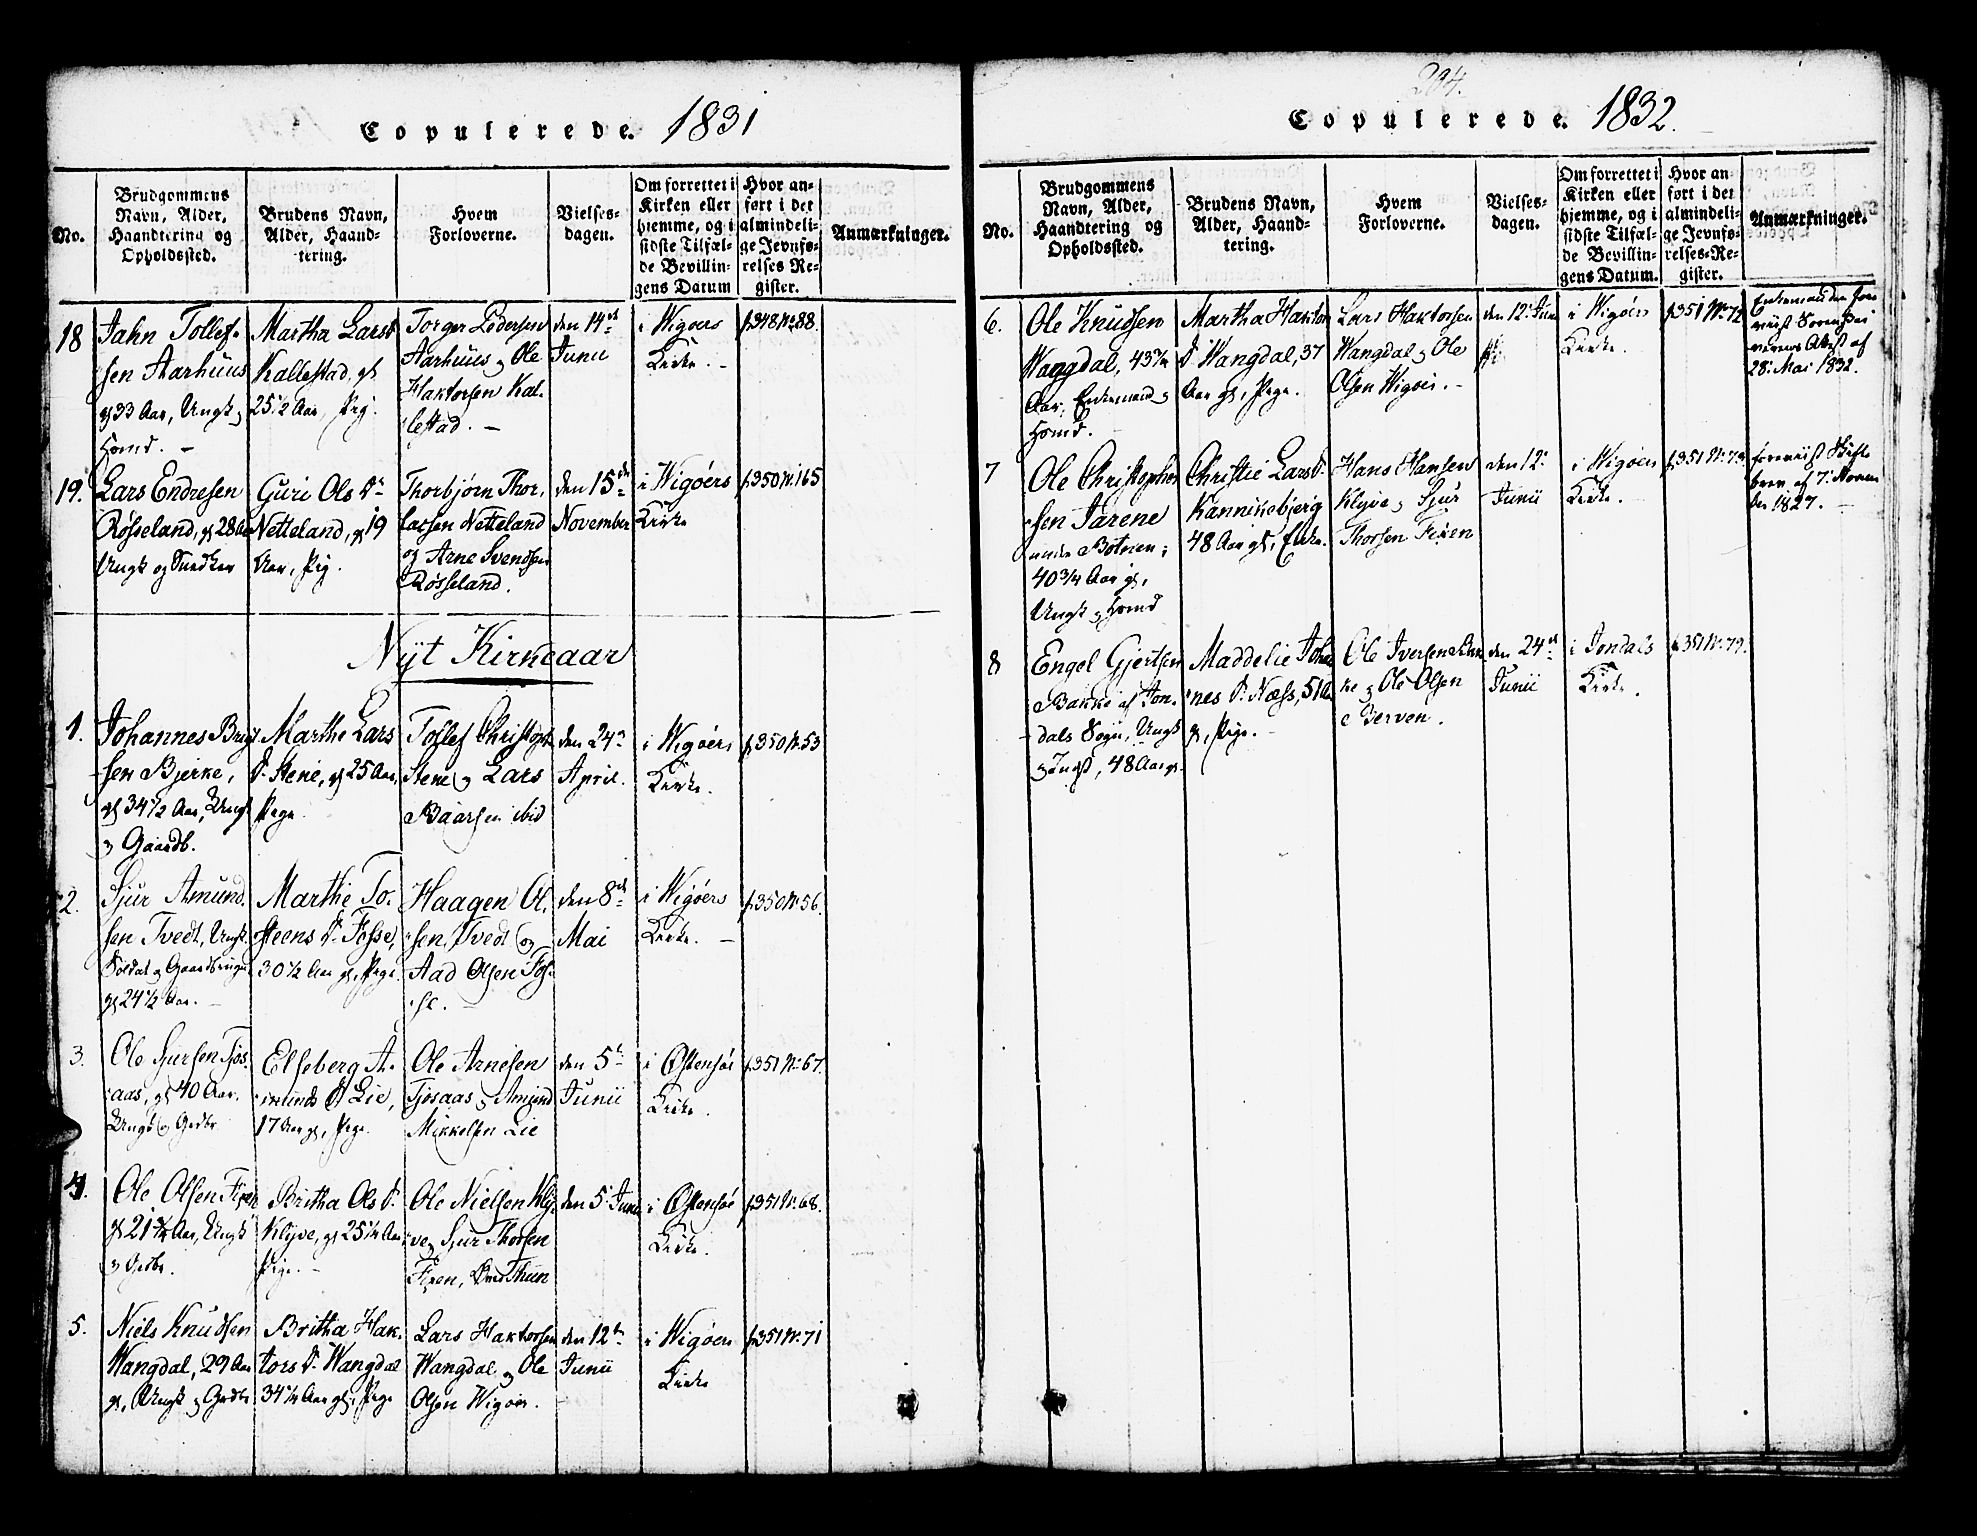 Copulerede. 1831
No.
Brudgommens
Navn, Alder,
Haandtering og
Opholdssted.
Brudens Navn,
Alder, Haand-
tering.
Hvem
Forloverne.
Vielses-
dagen.
Om forrettet i
Kirken eller
hjemme, og i
sidste Tilfæl-
de Bevillin-
gens Datum
Hvor an-
ført i det
almindeli-
ge Jevnfø-
relses Re-
gister.
Anmærkninger.
18
Jahn Tollef-
sen Aarhuus
gl 33 Aar, Ungk. og
Huusmd. —
Martha Larsd
Kallestad gl
25 1/2 Aar, Pig.
Torger Pedersen
Aarhuus og Ole
Haktorsen Kal-
lestad. —
den 14de
Junii
i Wigøers
Kirke. —
f. 348 No 88.
19.
Lars Endresen
Røsseland, gl 28 Aar
Ungk og Snedker
Guri Ols Dr
Netteland, gl 19
Aar, Pig.
Thorbjørn Thor-
lassen Netteland
og Arne Svendsen
Røsseland.
den 15de
November
i Wigøers
Kirke
f. 350 No 165
Nyt Kirkeaar
1.
Johannes Brigt
sen Bjerke,
gl 34 1/2 Aar, Ungk
og Gaardb.
Marthe Lars
D. Stene, gl 25 Aar,
Pige
Tollef Christoph
Stene og Lars
Baarsen ibid
den 24de
April.
i Wigøers
Kirke.
f. 350 No 53
2.
Sjur Amund
sen Tvedt, Ungk
Soldat og Gaardbruger
gl 24 1/2 Aar. —
Marthe To-
steens D. Fosse,
30 1/2 Aar gl, Pige
Haagen Ol-
sen Tvedt og
Aad Olsen Fos-
se. —
den 8de
Mai
i Wigøers
Kirke. —
f. 350 No 56.
3.
Ole Sjursen Tjos-
aas, gl 40 Aar.
Ungk og Grdbr
Elseberg A-
munds D Lie,
17 Aar gl, Pige.
Ole Arnesen
Tjosaas og Amund
Mikkelsen Lie
den 5te
Junii
i Østensøe
Kirke.
f. 351 No 67.
4.
Ole Olsen Fixen
gl 21 3/4 Aar, Ungk
og Grdbr.
Britha Ols D.
Klyve, gl 25 1/4 Aar
Pige. —
Ole Nielsen Kly-
ve og Sjur Thorsen
Fixen,
den 5. Junii
i Østensøe
Kirke.
f. 351 No 68.
5.
Niels Knudsen
Wangdal, 29 Aar
gl, Ungk og Grdbr
Britha Hak-
tors D. Wangdal
34 1/4 Aar gl, Pige
Lars Haktorsen
Wangdal og Ole
Olsen Wigøer.
den 12te
Junii
i Wigøers
Kirke
f. 351 No 71
204.
Copulerede. 1832.
No.
Brudgommens
Navn, Alder,
Haandtering og
Opholdssted.
Brudens Navn,
Alder, Haand-
tering.
Hvem
Forloverne.
Vielses-
dagen.
Om forrettet i
Kirken eller
hjemme, og i
sidste Tilfæl-
de Bevillin-
gens Datum.
Hvor an-
ført i det
almindeli-
ge Jevnfø-
relses-Re-
gister.
Anmærkninger.
6.
Ole Knudsen
Wangdal, 43 1/4
Aar, Enkemand og
Huusmd.
Martha Haktor
D. Wangdal, 37
Aar gl, Pige.
Lars Haktorsen
Wangdal og Ole
Olsen Wigøer. —
den 12. Juni
i Wigøers
Kirke.
f. 351 No 72
Enkemanden fore
viist Sorenskri
verens Attest af
28. Mai 1832.
7
Ole Christopher
sen Tarene
under Botnen,
40 3/4 Aar gl,
Ungk og Huusmd
Christie Lars D.
Kannikebjerg
48 Aar gl, Enke.
Hans Hansen
Klyve og Sjur
Thorsen Fixen
den 12.
Junii
i Wigøers
Kirke.
f. 351 No 73
foreviist Skifte
brev af 7. Novem
ber 1827. —
8
Engel Gjertsen
Bakke af Jon-
dals Sogn, Ungk
og Ingst, 48 Aar gl.
Maddelie Joha
nes D. Næss, 51 Aar
gl, Pige. —
Ole Iversen Bak
ke og Ole Olsen
Berven.
den 24de
Junii
i Jondals
Kirke.
f. 351 No 79.